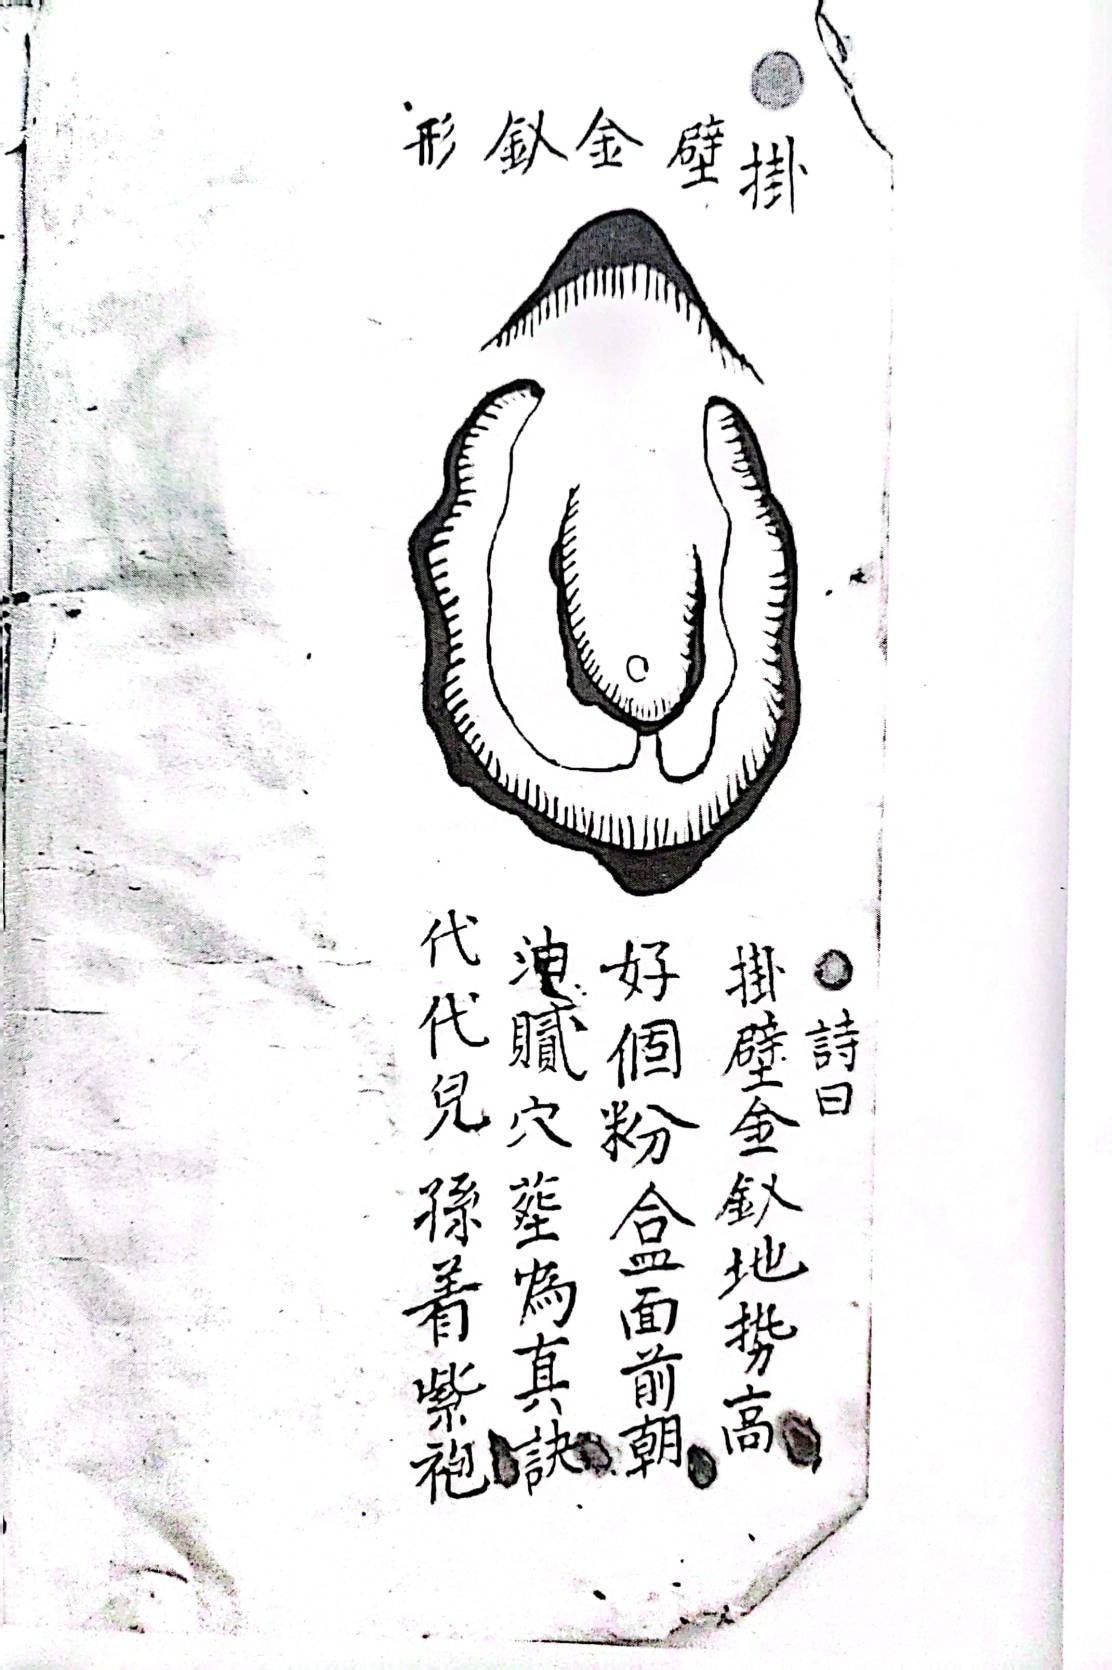 掛壁金釵形
詩曰
掛壁金釵地勢高
好個粉盒面前朝
穴塟為真訣
代代兒孫着紫袍